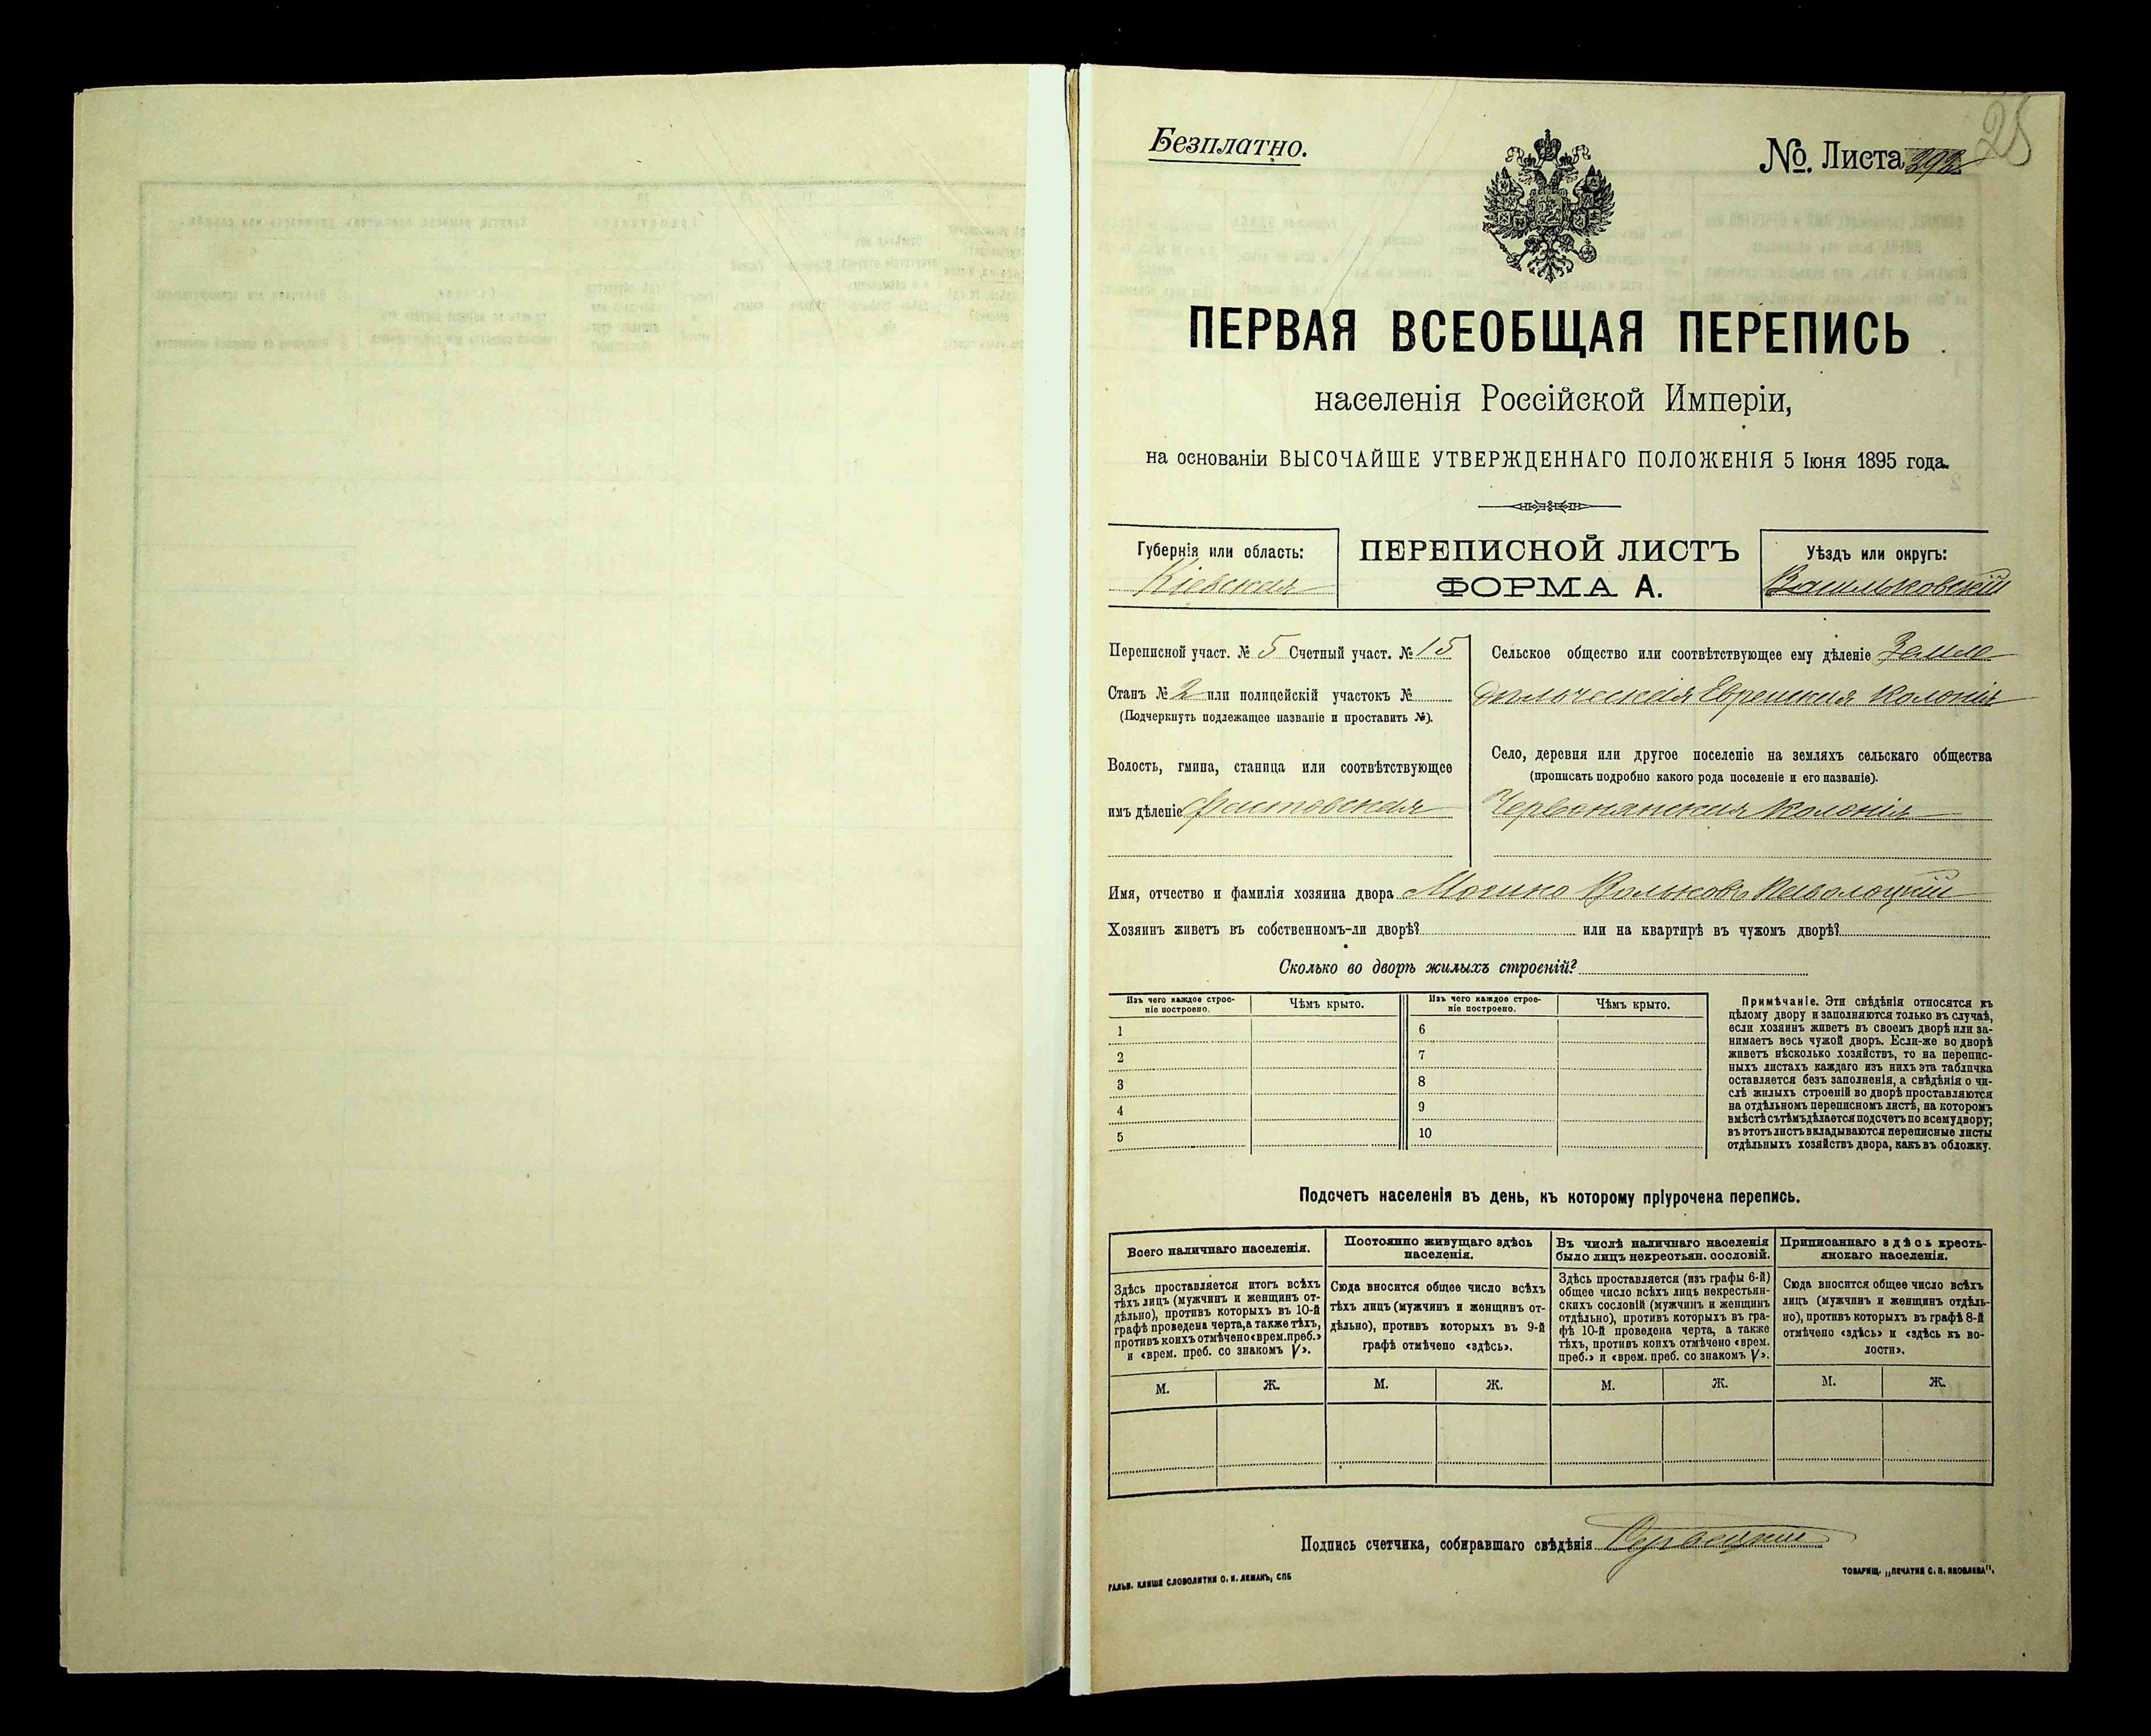 Безплатно.
№ Листа 292
28
ПЕРВАЯ ВСЕОБЩАЯ ПЕРЕПИСЬ
населенія Россійской Имперіи,
на основаніи ВЫСОЧАЙШЕ УТВЕРЖДЕННАГО ПОЛОЖЕНІЯ 5 Іюня 1895 года.
Губернія или область:
Кіевская
ПЕРЕПИСНОЙ ЛИСТЪ
ФОРМА А.
Уѣздъ или округъ:
Васильковскій
Переписной участ. № 5 Счетный участ. № 15
Станъ № 2 или полицейскій участокъ №
(Подчеркнуть подлежащее названіе и проставить №).
Волость, гмина, станица или соотвѣтствующее
имъ дѣленіе Фастовская
Сельское общество или соотвѣтствующее ему дѣленіе Земле
дѣльческая Еврейская колонія
Село, деревня или другое поселеніе на земляхъ сельскаго общества
(прописать подробно какого рода поселеніе и его названіе).
Червонянская Колонія
Имя, отчество и фамилія хозяина двора Паволоцкій
Хозяинъ живетъ въ собственномъ-ли дворѣ? или на квартирѣ въ чужомъ дворѣ?
Сколько во дворѣ жилыхъ строеній?
Изъ чего каждое строе-
ніе построено.
Чѣмъ крыто.
Изъ чего каждое строе-
ніе построено.
Чѣмъ крыто.
1
2
3
4
5
6
7
8
9
10
Примѣчаніе. Эти свѣдѣнія относятся къ
цѣлому двору и заполняются только въ случаѣ,
если хозяинъ живетъ въ своемъ дворѣ или за-
нимаетъ весь чужой дворъ. Если-же во дворѣ
живетъ нѣсколько хозяйствъ, то на перепис-
ныхъ листахъ каждаго изъ нихъ эта табличка
оставляется безъ заполненія, а свѣдѣнія о чи-
слѣ жилыхъ строеній во дворѣ проставляются
на отдѣльномъ переписномъ листѣ, на которомъ
вмѣстѣ съ тѣмъ дѣлается подсчетъ по всему двору;
въ этотъ листъ вкладываются переписные листы
отдѣльныхъ хозяйствъ двора, какъ въ обложку.
Подсчетъ населенія въ день, къ которому пріурочена перепись.
Всего наличнаго населенія.
Здѣсь проставляется итогъ всѣхъ
тѣхъ лицъ (мужчинъ и женщинъ от-
дѣльно), противъ которыхъ въ 10-й
графѣ проведена черта, а также тѣхъ,
противъ коихъ отмѣчено «врем. преб.»
и «врем. преб. со знакомъ V».
М.
Ж.
Постоянно живущаго здѣсь
населенія.
Сюда вносится общее число всѣхъ
тѣхъ лицъ (мужчинъ и женщинъ от-
дѣльно), противъ которыхъ въ 9-й
графѣ отмѣчено «здѣсь».
М.
Ж.
Въ числѣ наличнаго населенія
было лицъ некрестьян. сословій.
Здѣсь проставляется (изъ графы 6-й)
общее число всѣхъ лицъ некрестьян-
скихъ сословій (мужчинъ и женщинъ
отдѣльно), противъ которыхъ въ гра-
фѣ 10-й проведена черта, а также
тѣхъ, противъ коихъ отмѣчено «врем.
преб.» и «врем. преб. со знакомъ V».
М.
Ж.
Приписаннаго здѣсь кресть-
янскаго населенія.
Сюда вносится общее число всѣхъ
лицъ (мужчинъ и женщинъ отдѣль-
но), противъ которыхъ въ графѣ 8-й
отмѣчено «здѣсь» и «здѣсь къ во-
лости».
М.
Ж.
Подпись счетчика, собиравшаго свѣдѣнія
ГАЛЬВ. КЛИШЕ СЛОВОЛИТНИ О. И. ЛЕМАНЪ, СПБ
ТОВАРИЩ. „ПЕЧАТНЯ С. П. ЯКОВЛЕВА".